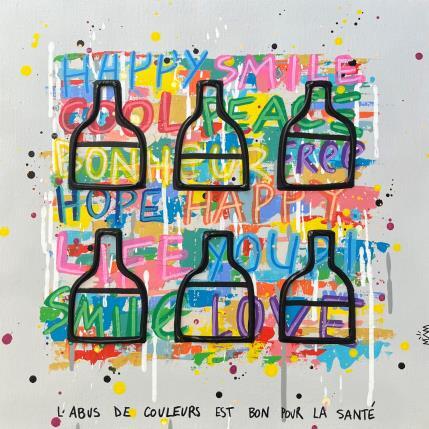 HAPPY SMILE
COOL PEACE
BONHEUR FREE
HOPE HAPPY
LIFE YOU
SMILE LOVE
L'ABUS DE COULEURS EST BON POUR LA SANTÉ